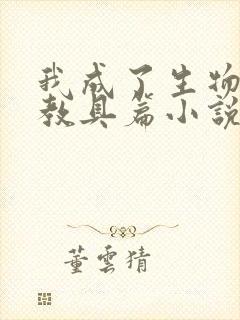 我成了生物
教具篇小說
董雲猜